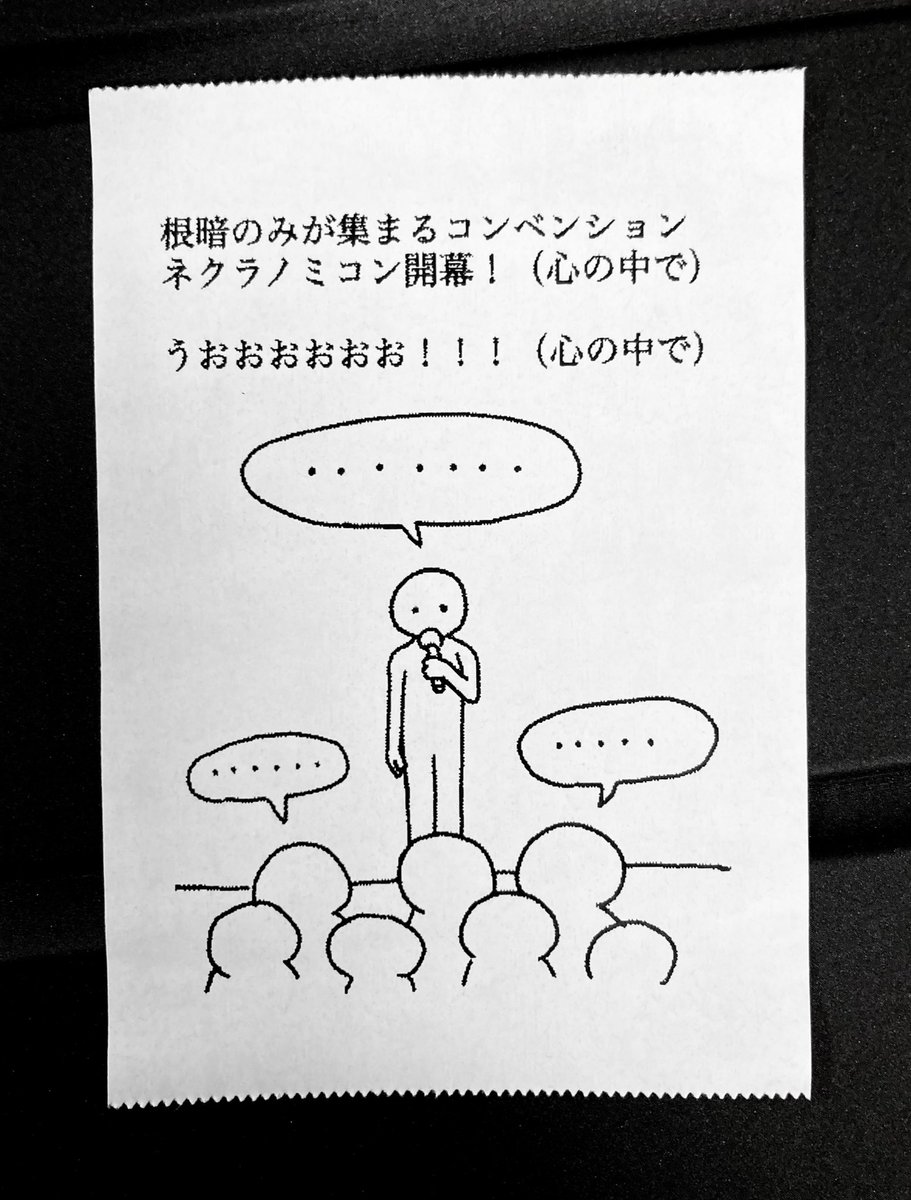 根暗のみが集まるコンベンション
ネクラノミコン開幕！（心の中で）
うおおおおおお！！！（心の中で）
・・・・・・・
・・・・・・
・・・・・